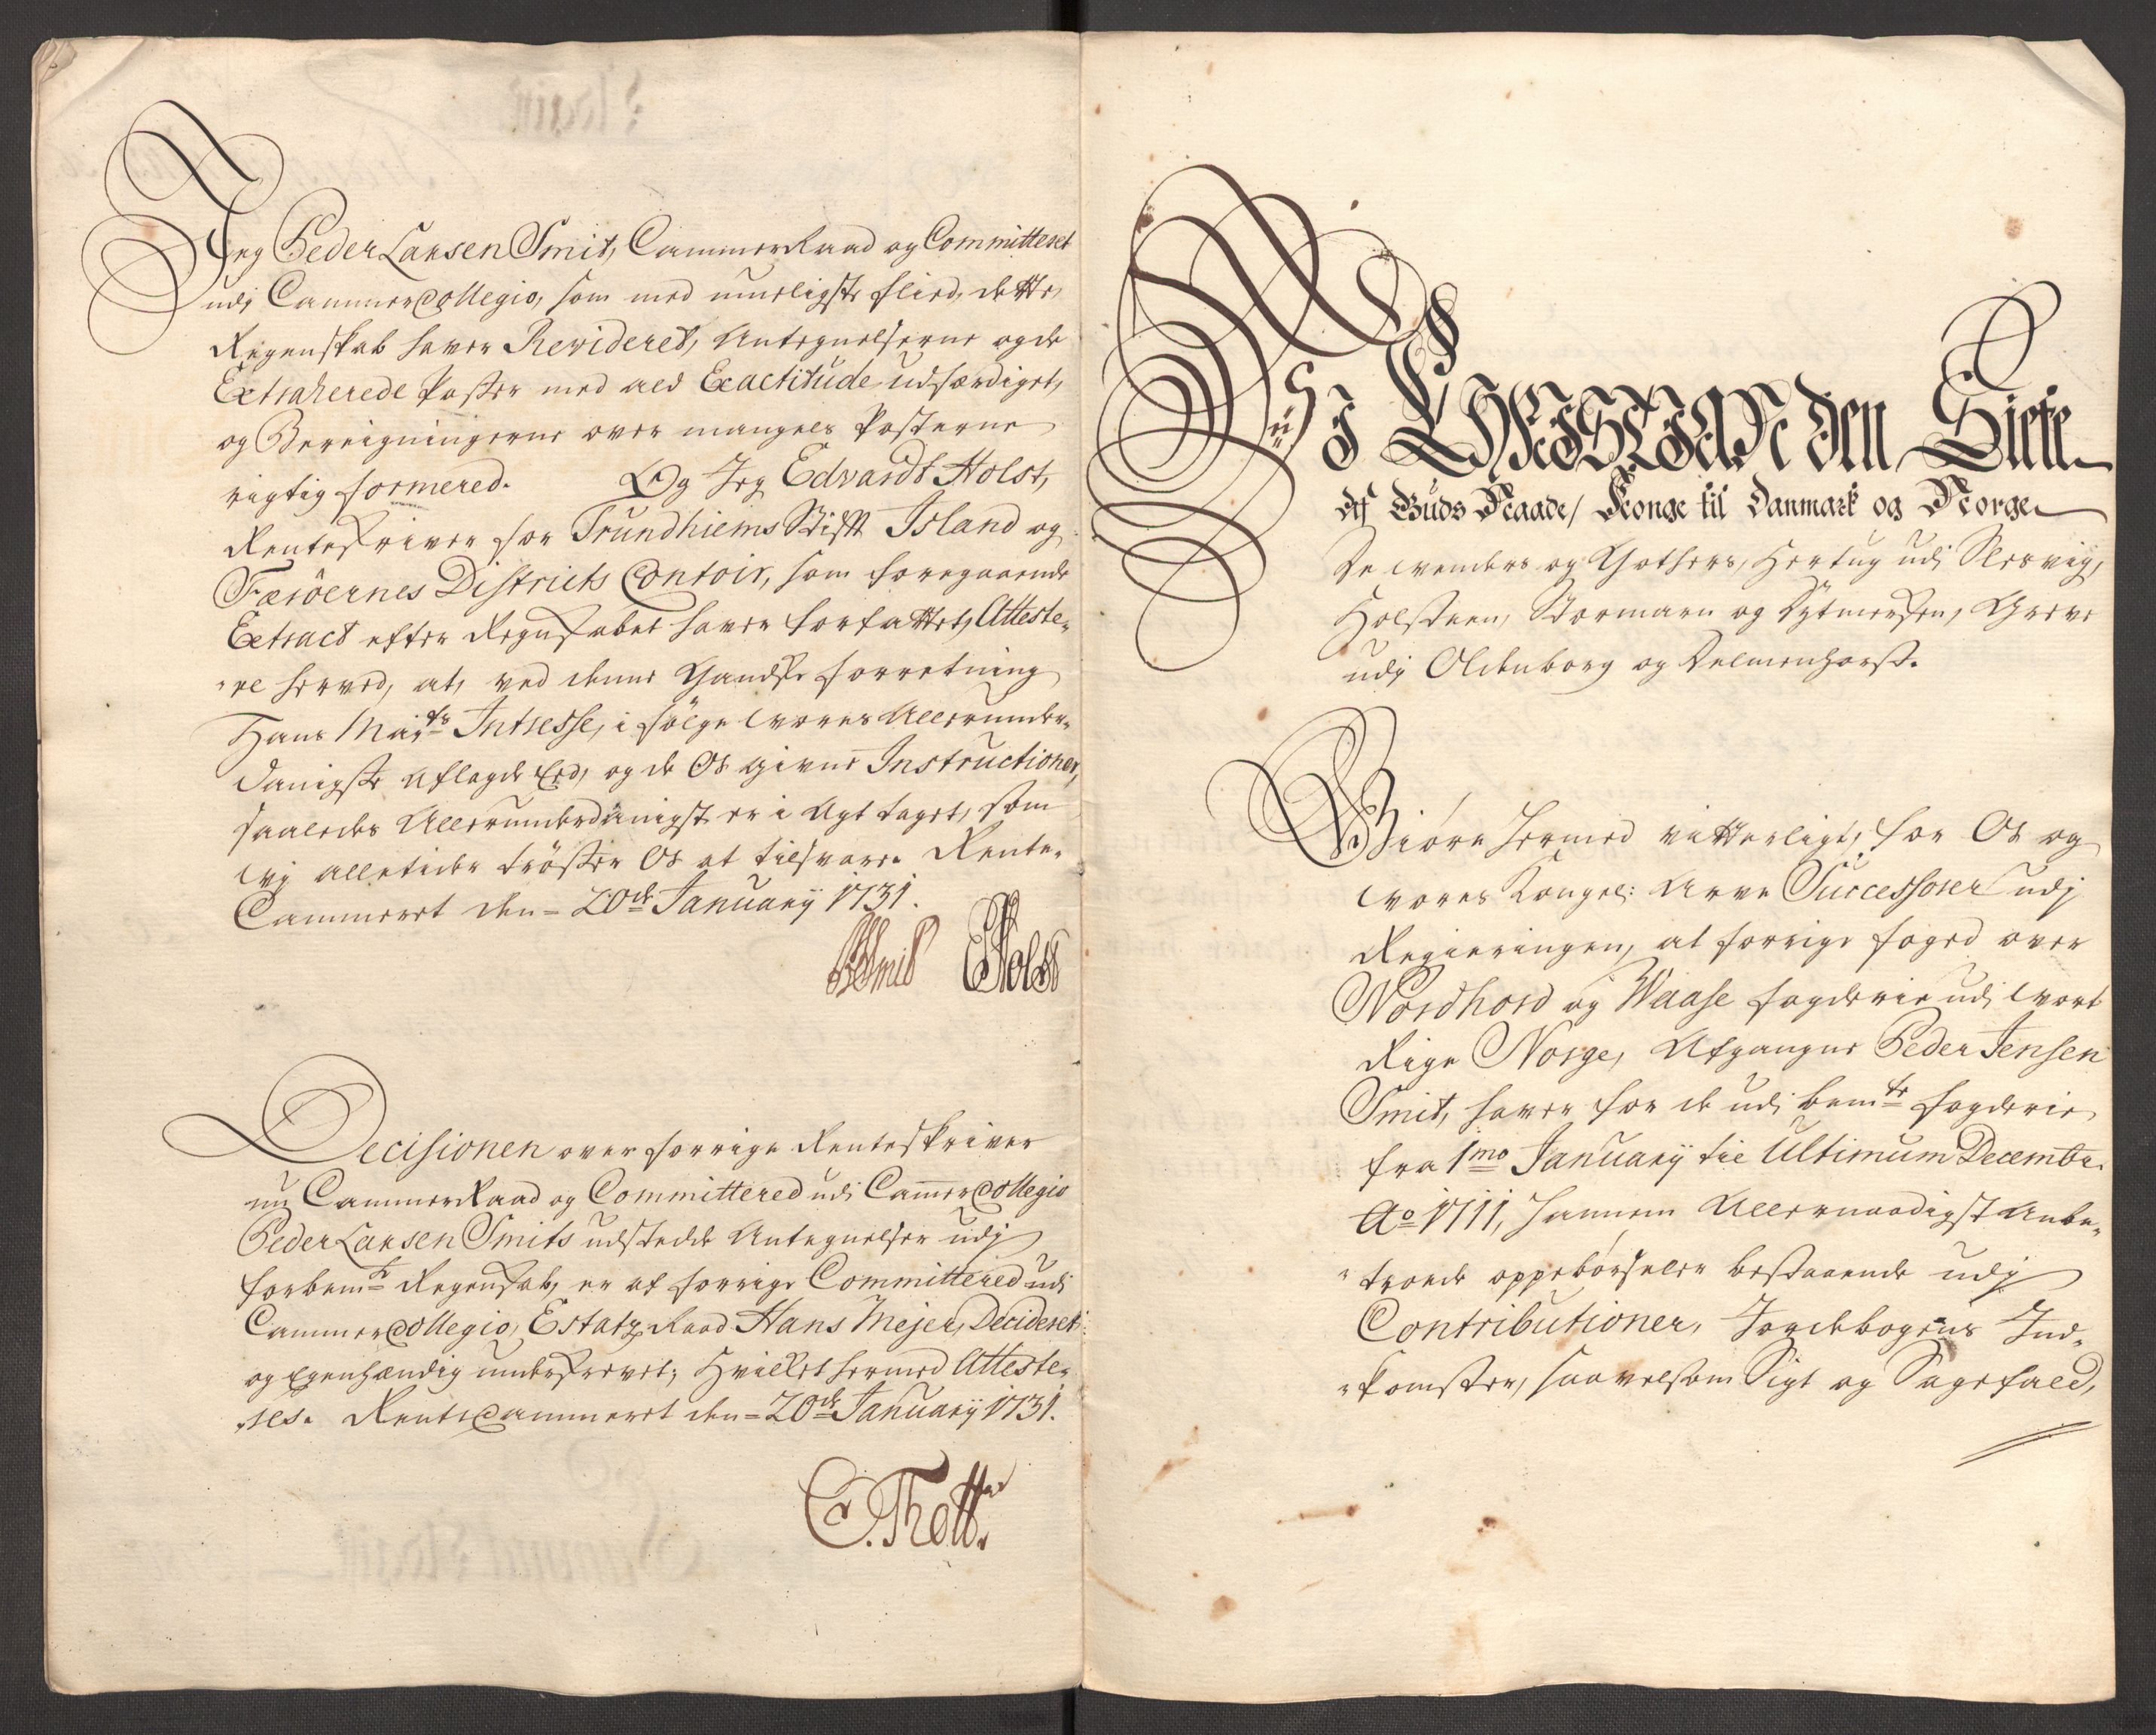 Jeg Peder Larsen Smit, CammerRaad og Committeret
udj CammerCollegio, som med mueligste fliid, dette
Regenskab haver Revideret, Antegnelserne og de
Extraherede Poster med ald Exactitude udfærdiget,
og Bereigningerne over mangels Posterne
rigtig formered. Og Jeg Edvardt Holst,
Renteskriver for Trundhiems Stift Island og
Færöernes Districts Contoir, som foregaaende
Extract efter Regnskabet haver forfattet, Atteste-
-re herved, at, ved denne Gandske forretning
Hans Maj:ts Intresse, i følge Vores Allerunder-
danigste aflagde Eed, og de Os givne Instructioner,
saaledes Allerunderdanigst er i Agt taget, som
Vj alletider trøster Os at tilsvare. Rente-
Cammeret den 20de January 1731.
PLSmit EHolst
Decisionen over forrige Renteskriver
nu CammerRaad og Committered udi CammerCollegio
Peder Larsen Smits udstedde Antegnelser udj
forbemte Regenskab, er af forrige Committered udi
CammerCollegio, Estatz Raad Hans Mejer, Decideret
og Egenhændig underskrevet; Hvilket hermed Atteste-
-res. RenteCammeret den 20de January 1731.
C. Thott
Vj CHRISTIAN den Siette
Af Guds Naade, Konge til Danmark og Norge
De Wenders og Gothers, Hertug udi Slesvig,
Holsteen, Stormarn og Dytmersken, Greve
udj Oldenborg og Delmenhorst.
Giøre hermed vitterligt, for Os og
Vores Kongel: Arve Successorer udj
Regieringen, at forrige foged over
Nordhord og Waase fogderie udi Vort
Rige Norge, Afgangne Peder Jensen
Smit, haver for de udi bemte fogderie
fra 1mo January til Ultimum Decembr.
Ao 1711, hannem Allernaadigst Anbe-
-troede oppebørseler bestaaende udj
Contributioner, Jordebogens Ind-
-komster, saavelsom Sigt og Sagefald,